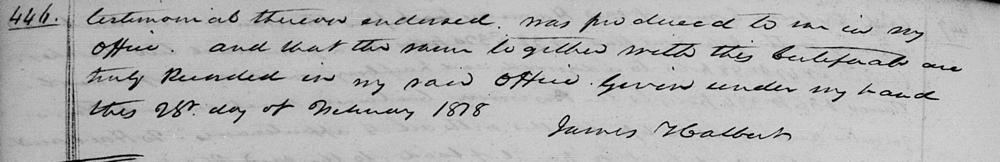 446. testimonials thereon endorsed. was produced to me in my
office. and that the same together with this Certificate are
truly Recorded in my said Office. Given under my hand
this 28th day of February 1818
James Halbert